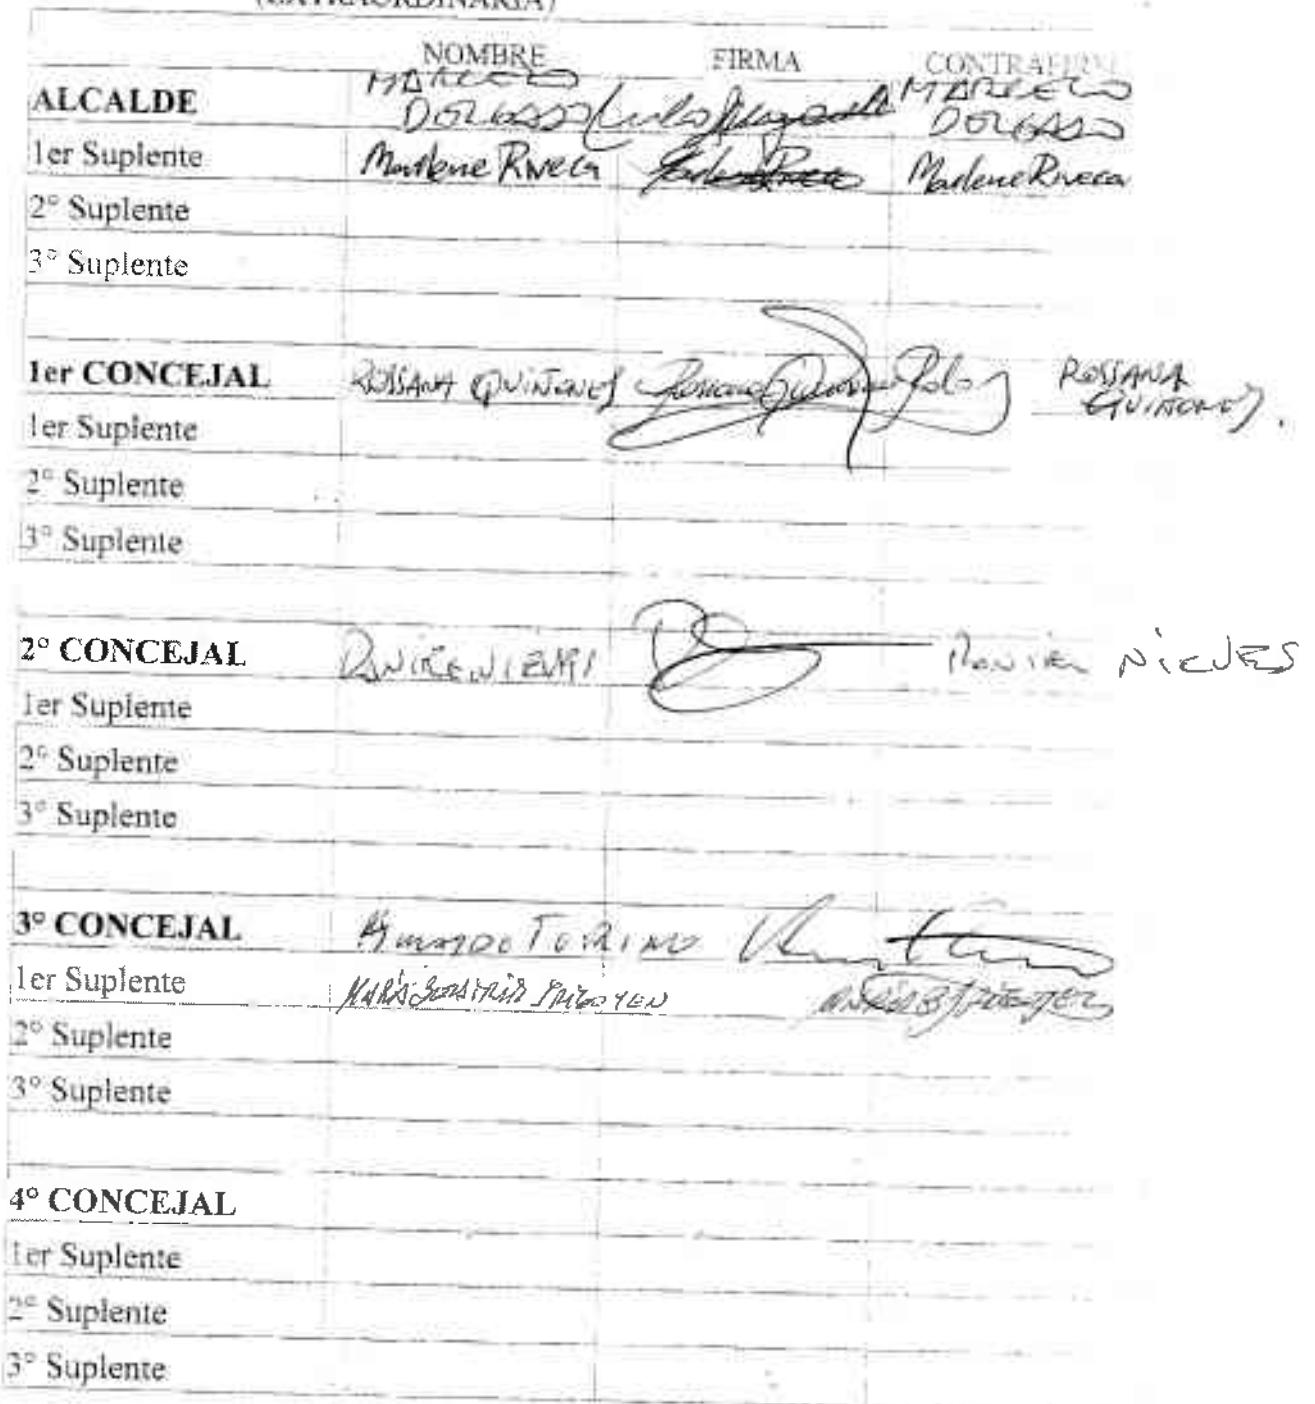 (EXTRAORDINARIA)
NOMBRE FIRMA CONTRAFIRMA
ALCALDE MARCELO DELGADO MARCELO DELGADO
1er Suplente Marlene Rivera Marlene Rivera
2° Suplente
3° Suplente
1er CONCEJAL ROSSANA QUIÑONES ROSSANA QUIÑONES.
1er Suplente
2° Suplente
3° Suplente
2° CONCEJAL DANIEL NIEVES DANIEL NIEVES
1er Suplente
2° Suplente
3° Suplente
3° CONCEJAL
1er Suplente
2° Suplente
3° Suplente
4° CONCEJAL
1er Suplente
2° Suplente
3° Suplente